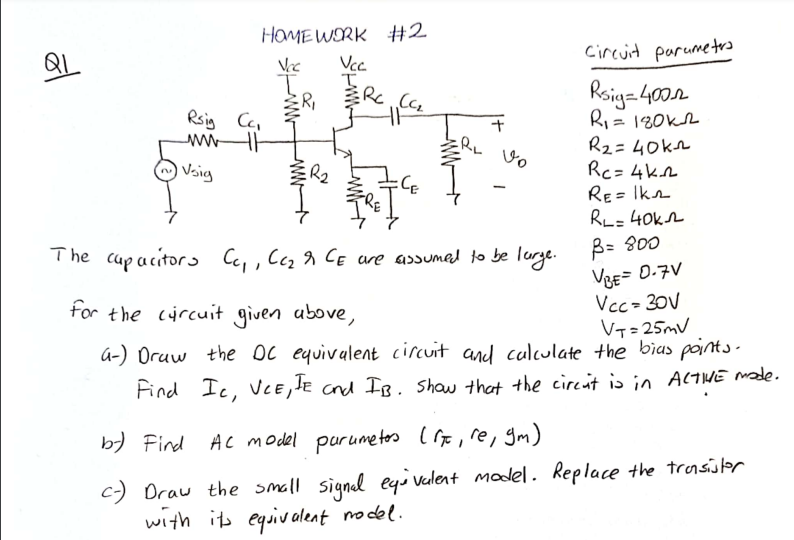 HOMEWORK #2
Q1
Circuit parameters
Vcc Vcc
R1 Rc Cc2
Rsig Cc1
+
RL
Vo
Vsig
R2
CE
RE
-
Rsig=400Ω
R1= 180kΩ
R2= 40kΩ
Rc= 4kΩ
RE= 1kΩ
RL= 40kΩ
β= 800
VBE= 0.7V
Vcc= 30V
VT=25mV
The capacitors Cc1, Cc2 & CE are assumed to be large.
For the circuit given above,
a-) Draw the DC equivalent circuit and calculate the bias points.
Find Ic, VCE, IE and IB. Show that the circuit is in ACTIVE mode.
b-) Find AC model parameters (rπ, re, gm)
c-) Draw the small signal equivalent model. Replace the transistor
with its equivalent model.